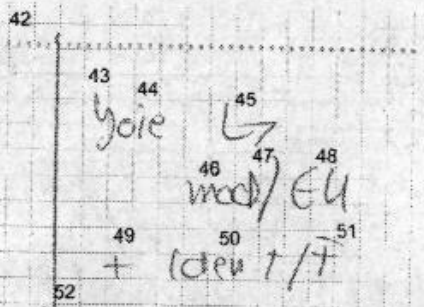 42
43 44 45
yoie ↳
46 47 48
mod/EU
49 50 51
+ Iden 1/F
52